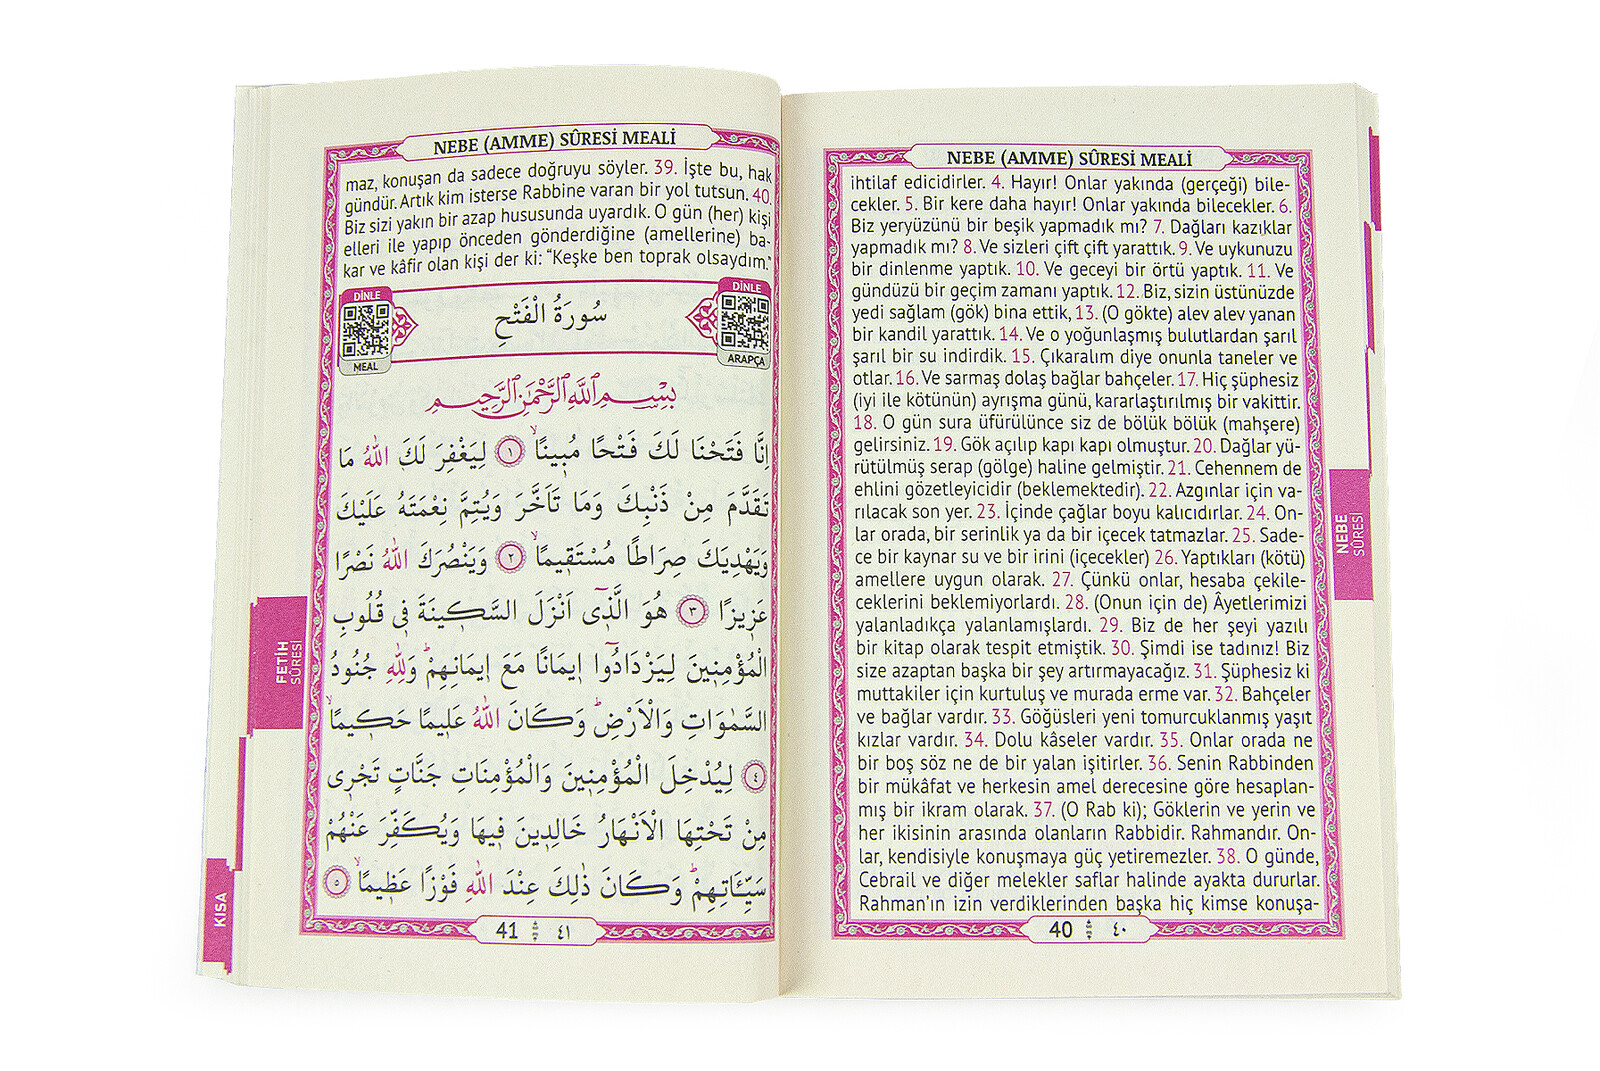 NEBE (AMME) SÛRESİ MEALİ
ihtilaf edicidirler. 4. Hayır! Onlar yakında (gerçeği) bile-
cekler. 5. Bir kere daha hayır! Onlar yakında bilecekler. 6.
Biz yeryüzünü bir beşik yapmadık mı? 7. Dağları kazıklar
yapmadık mı? 8. Ve sizleri çift çift yarattık. 9. Ve uykunuzu
bir dinlenme yaptık. 10. Ve geceyi bir örtü yaptık. 11. Ve
gündüzü bir geçim zamanı yaptık. 12. Biz, sizin üstünüzde
yedi sağlam (gök) bina ettik, 13. (O gökte) alev alev yanan
bir kandil yarattık. 14. Ve o yoğunlaşmış bulutlardan şarıl
şarıl bir su indirdik. 15. Çıkaralım diye onunla taneler ve
otlar. 16. Ve sarmaş dolaş bağlar bahçeler. 17. Hiç şüphesiz
(iyi ile kötünün) ayrışma günü, kararlaştırılmış bir vakittir.
18. O gün sura üfürülünce siz de bölük bölük (mahşere)
gelirsiniz. 19. Gök açılıp kapı kapı olmuştur. 20. Dağlar yü-
rütülmüş serap (gölge) haline gelmiştir. 21. Cehennem de
ehlini gözetleyicidir (beklemektedir). 22. Azgınlar için va-
rılacak son yer. 23. İçinde çağlar boyu kalıcıdırlar. 24. On-
lar orada, bir serinlik ya da bir içecek tatmazlar. 25. Sade-
ce bir kaynar su ve bir irini (içecekler) 26. Yaptıkları (kötü)
amellere uygun olarak. 27. Çünkü onlar, hesaba çekile-
ceklerini beklemiyorlardı. 28. (Onun için de) Âyetlerimizi
yalanladıkça yalanlamışlardı. 29. Biz de her şeyi yazılı
bir kitap olarak tespit etmiştik. 30. Şimdi ise tadınız! Biz
size azaptan başka bir şey artırmayacağız. 31. Şüphesiz ki
muttakiler için kurtuluş ve murada erme var. 32. Bahçeler
ve bağlar vardır. 33. Göğüsleri yeni tomurcuklanmış yaşıt
kızlar vardır. 34. Dolu kâseler vardır. 35. Onlar orada ne
bir boş söz ne de bir yalan işitirler. 36. Senin Rabbinden
bir mükâfat ve herkesin amel derecesine göre hesaplan-
mış bir ikram olarak. 37. (O Rab ki); Göklerin ve yerin ve
her ikisinin arasında olanların Rabbidir. Rahmandır. On-
lar, kendisiyle konuşmaya güç yetiremezler. 38. O günde,
Cebrail ve diğer melekler saflar halinde ayakta dururlar.
Rahman'ın izin verdiklerinden başka hiç kimse konuşa-
40 ٤٠
NEBE
SÛRESİ
NEBE (AMME) SÛRESİ MEALİ
maz, konuşan da sadece doğruyu söyler. 39. İşte bu, hak
gündür. Artık kim isterse Rabbine varan bir yol tutsun. 40.
Biz sizi yakın bir azap hususunda uyardık. O gün (her) kişi
elleri ile yapıp önceden gönderdiğine (amellerine) ba-
kar ve kâfir olan kişi der ki: “Keşke ben toprak olsaydım.”
DİNLE
MEAL
سُورَةُ الْفَتْحِ
DİNLE
ARAPÇA
بِسْمِ اللَّهِ الرَّحْمٰنِ الرَّحِيمِ
اِنَّا فَتَحْنَا لَكَ فَتْحًا مُبٖينًاۙ ﴿١﴾ لِيَغْفِرَ لَكَ اللّٰهُ مَا
تَقَدَّمَ مِنْ ذَنْبِكَ وَمَا تَاَخَّرَ وَيُتِمَّ نِعْمَتَهُ عَلَيْكَ
وَيَهْدِيَكَ صِرَاطًا مُسْتَقٖيمًاۙ ﴿٢﴾ وَيَنْصُرَكَ اللّٰهُ نَصْرًا
عَزٖيزًا ﴿٣﴾ هُوَ الَّذٖٓى اَنْزَلَ السَّكٖينَةَ فٖى قُلُوبِ
الْمُؤْمِنٖينَ لِيَزْدَادُٓوا اٖيمَانًا مَعَ اٖيمَانِهِمْؕ وَلِلّٰهِ جُنُودُ
السَّمٰوَاتِ وَالْاَرْضِؕ وَكَانَ اللّٰهُ عَلٖيمًا حَكٖيمًاۙ
﴿٤﴾ لِيُدْخِلَ الْمُؤْمِنٖينَ وَالْمُؤْمِنَاتِ جَنَّاتٍ تَجْرٖى
مِنْ تَحْتِهَا الْاَنْهَارُ خَالِدٖينَ فٖيهَا وَيُكَفِّرَ عَنْهُمْ
سَيِّـَٔاتِهِمْؕ وَكَانَ ذٰلِكَ عِنْدَ اللّٰهِ فَوْزًا عَظٖيمًاۙ ﴿٥﴾
41 ٤١
FETİH
SÛRESİ
KISA